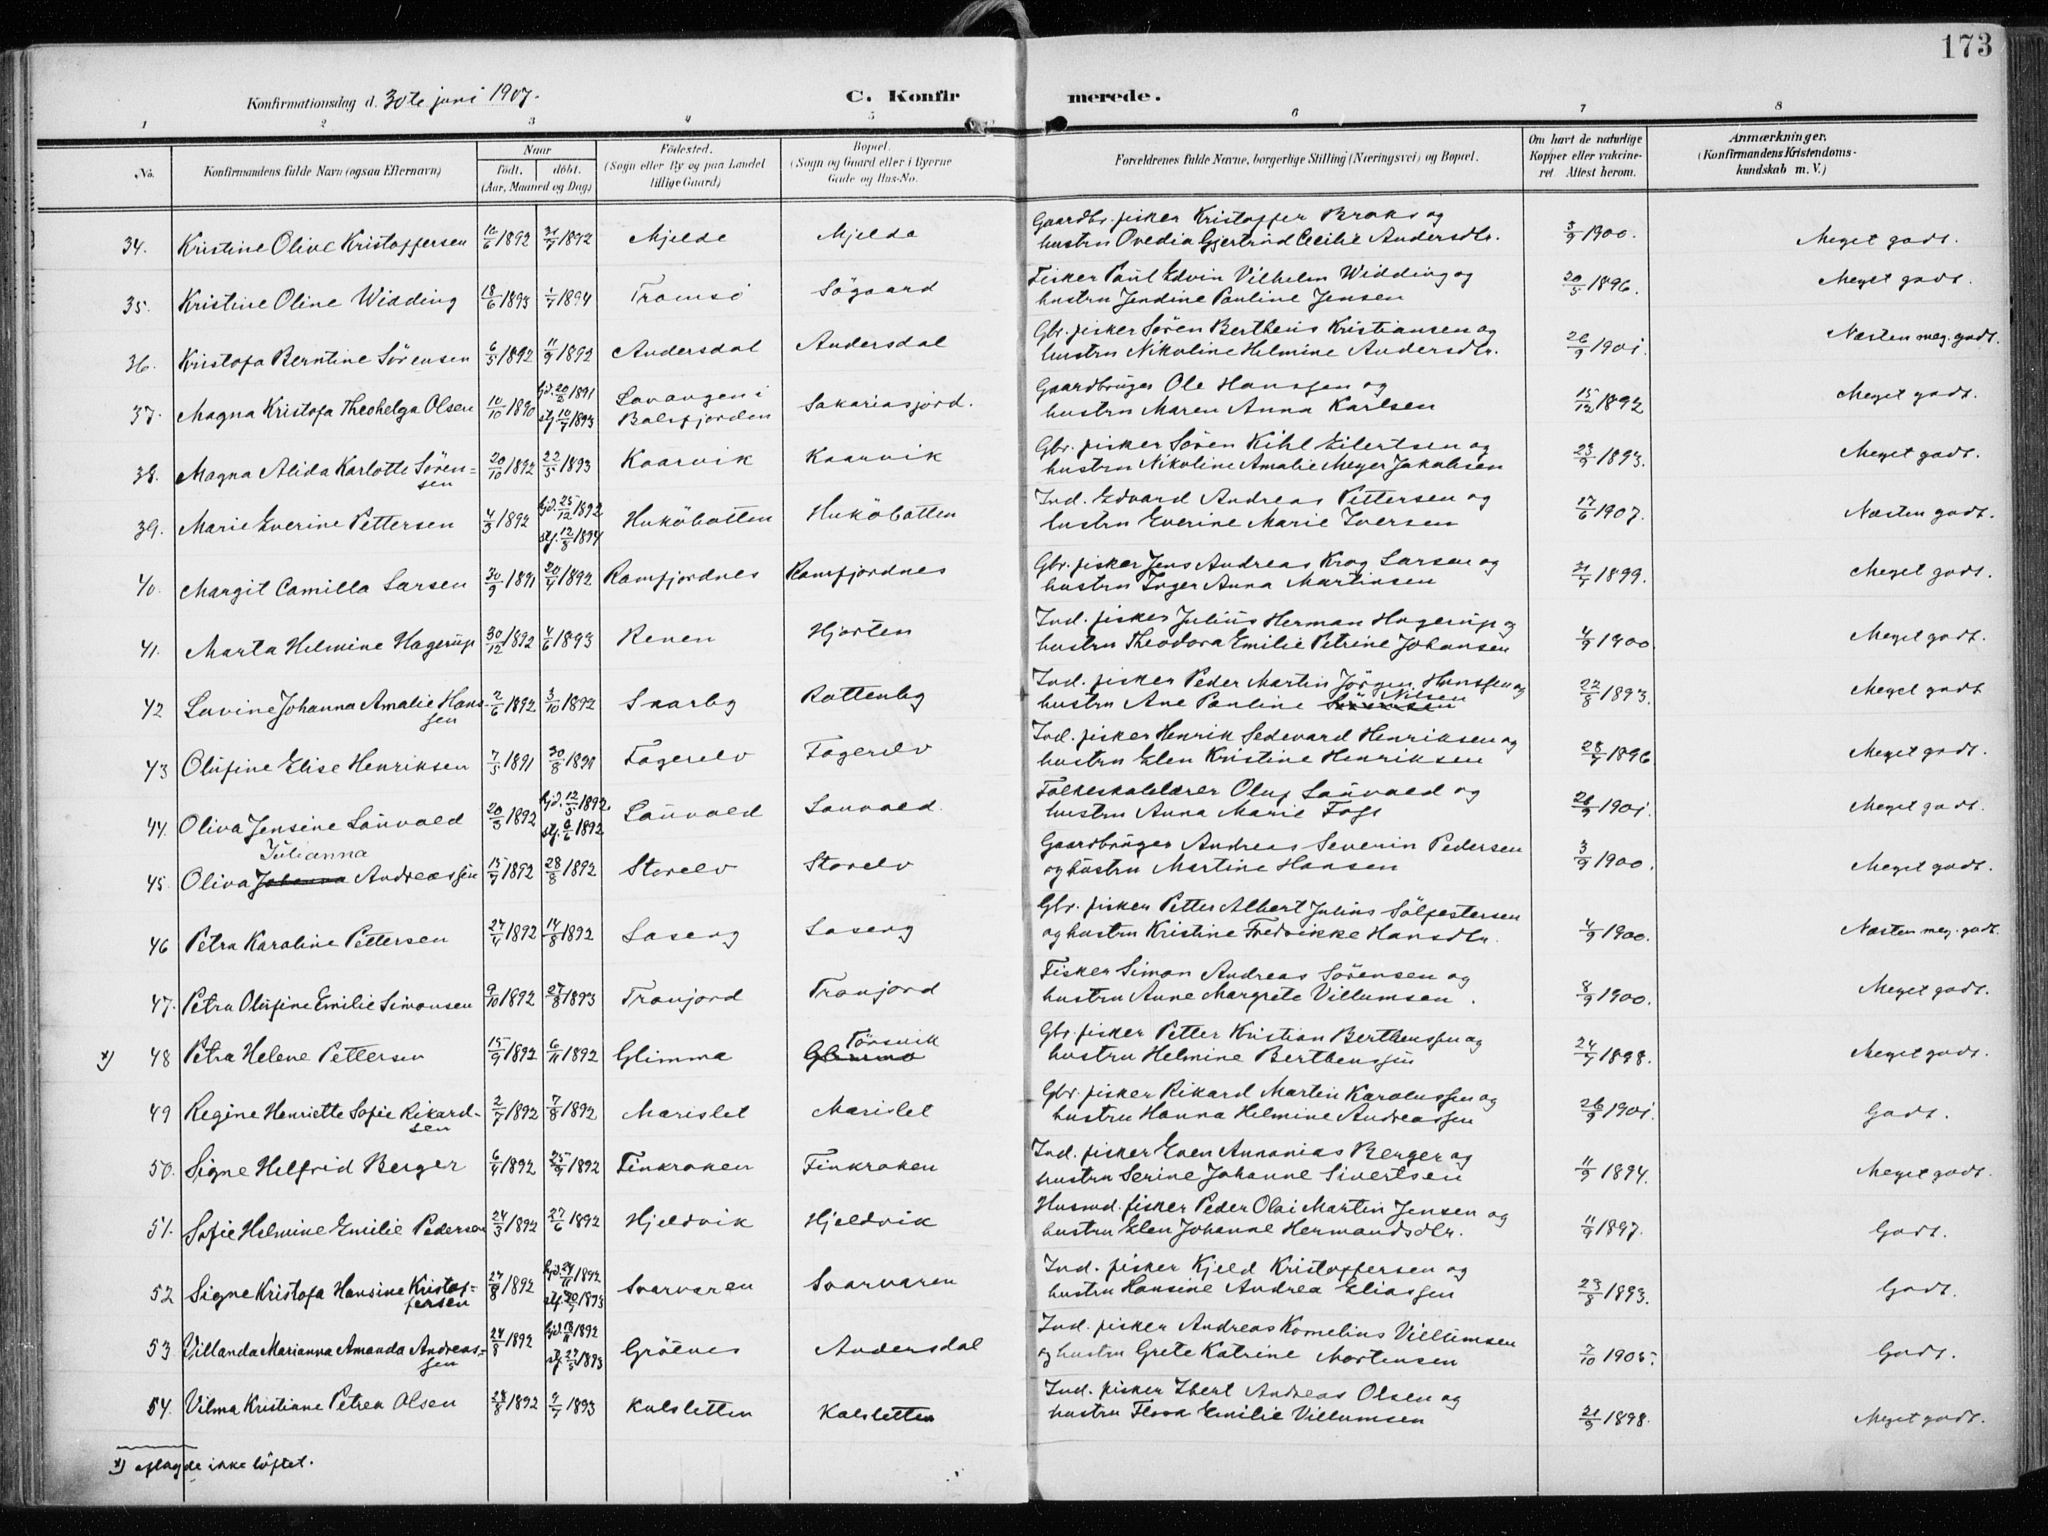 173
Konfirmationsdag d. 30te juni 1907.
C. Konfirmerede.
1 2 3 4 5 6 7 8
No. Konfirmandens fulde Navn (ogsaa Efternavn) Naar født, døbt. (Aar, Maaned og Dag) Fødested. (Sogn eller By og paa Landet tillige Gaard) Bopæl. (Sogn og Gaard eller i Byerne Gade og Hus-No. Forældrenes fulde Navne, borgerlige Stilling (Næringsvei) og Bopæl. Om havt de naturlige Kopper eller vakcineret Attest herom. Anmærkninger. (Konfirmandens Kristendomskundskab m. V.)
34. Kristine Olive Kristoffersen 1892 1892 Mjelde Mjelde Gaardbr. fisker Kristoffer Broks og
hustru Ovedia Gjertrud Cecilie Andersdtr. 3/9 1900. Meget godt.
35. Kristine Oline Widding 18/6 1893 1/7 1894 Tromsö Sögaard Fisker Paul Edvin Vilhelm Widding og
hustru Jendine Pauline Jensen 20/5 1896. Meget godt.
36. Kristofa Berntine Sørensen 6/5 1892 11/9 1892 Andersdal Andersdal Gbr. fisker Søren Bertheus Kristiansen og
hustru Nikoline Helmine Andersdtr. 26/9 1901. Næsten meg. godt.
37. Magna Kristofa Theohelga Olsen 10/10 1890 hjd. 20/2 1891 stf. 10/7 1893 Lavangen i Balsfjorden Sakariasjord. Gaardbruger Ole Hanssen og
hustru Maren Anna Karlsen 15/12 1892 Meget godt.
38. Magna Alida Karlotte Sørensen 20/10 1892 22/5 1893 Kaarvik Kaarvik Gbr. fisker Søren Kihl Eilertsen og
hustru Nikoline Amalie Meyer Jakobsen 23/9 1893. Meget godt.
39. Marie Everine Pettersen 4/9 1892 hjd. 25/12 1892 stf. 12/8 1894 Huköbotten Huköbotten Ind. Edvard Andreas Pettersen og
hustru Everine Marie Iversen 17/6 1907. Næsten godt.
40. Margit Camilla Larsen 30/9 1891 20/4 1892 Ramfjordnes Ramfjordnes Gbr. fisker Jens Andreas Krog Larsen og
hustru Inger Anna Martinsen 1899. Meget godt.
41. Marta Helmine Hagerup 30/12 1892 4/6 1893 Renen Hjorten Ind. fisker Julius Herman Hagerup og
hustru Theodora Emilie Petrine Johansen 4/9 1900 Meget godt.
42 Lavine Johanna Amalie Hanssen 2/6 1892 3/10 1892 Skarby Rottenby Ind. fisker Peder Martin Jørgen Hanssen og
hustru Ane Pauline Nilsen 22/8 1893. Meget godt.
43 Olufine Elise Henriksen 7/5 1891 30/8 1891 Fagerelv Fagerelv Ind. fisker Henrik Sedevard Henriksen og
hustru Elen Kristine Henriksen 1896 Meget godt.
44. Oliva Jensine Lauvold 20/3 1892 hjd. 12/5 1892. stf. 6/6 1892 Lauvold Lauvold. Folkeskolelærer Oluf Lauvold og
hustru Anna Marie Fogt 26/9 1901. Meget godt.
45. Oliva Johanna Julianna Andreassen 15/7 1892 28/8 1892 Storelv Storelv Gaardbruger Andreas Severin Pedersen
og hustru Martine Hansen 3/9 1900. Meget godt.
46 Petra Karoline Pettersen 27/4 1892 14/8 1892 Laserg Laserg Gbr. fisker Petter Albert Julius Sölfestersen
og hustru Kristine Fredrikke Hansdtr. 4/9 1900. Næsten meg. godt.
47. Petra Olufine Emilie Simonsen 9/10 1892 27/8 1893 Tronjord Tronjord Fisker Simon Andreas Sørensen og
hustru Anne Margrete Villumsen. 8/9 1900. Meget godt.
x) 48 Petra Helene Pettersen 15/9 1892 6/11 1892 Glimma Glimma Törsvik Gbr. fisker Petter Kristian Berthenssen og
hustru Helmine Berthenssen 1898. Meget godt.
49 Regine Henriette Sofie Rikardsen 2/7 1892 7/8 1892 Marislet Marislet Gbr. fisker Rikard Martin Karolussen og
hustru Hanna Helmine Andreassen 26/9 1901. Godt.
50. Signe Helfrid Berger 6/4 1892 25/9 1892 Finkroken Finkroken Ind. fisker Even Annanias Berger og
hustru Serine Johanne Sivertsen 11/9 1894. Meget godt.
51. Sofie Helmine Emilie Pedersen 24/3 1892 27/6 1892 Hjeldvik Hjeldvik Husmd. fisker Peder Olai Martin Jensen og
hustru Elen Johanne Hermandsdtr. 11/9 1897. Godt.
52 Signe Kristofa Hansine Kristoffersen 27/8 1892 hjd. 24/11 1892 stf. 1893 Svarvaren Svarvaren Ind. fisker Kjeld Kristoffersen og
hustru Hansine Andrea Eliassen 23/8 1893. Godt.
53 Villanda Marianna Amanda Andreassen 24/8 1892 hjd. 18/11 1892 stf. 27/5 1893 Gröenes Andersdal Ind. fisker Andreas Kornelius Villumsen
og hustru Grete Katrine Mortensen 7/10 1905. Godt.
54. Vilma Kristiane Petrea Olsen 28/8 1892 9/7 1893 Kalsletten Kalsletten Ind. fisker Ebert Andreas Olsen og
hustru Flora Emilie Villumsen 21/9 1898. Meget godt.
x) aflagde ikke löftet.